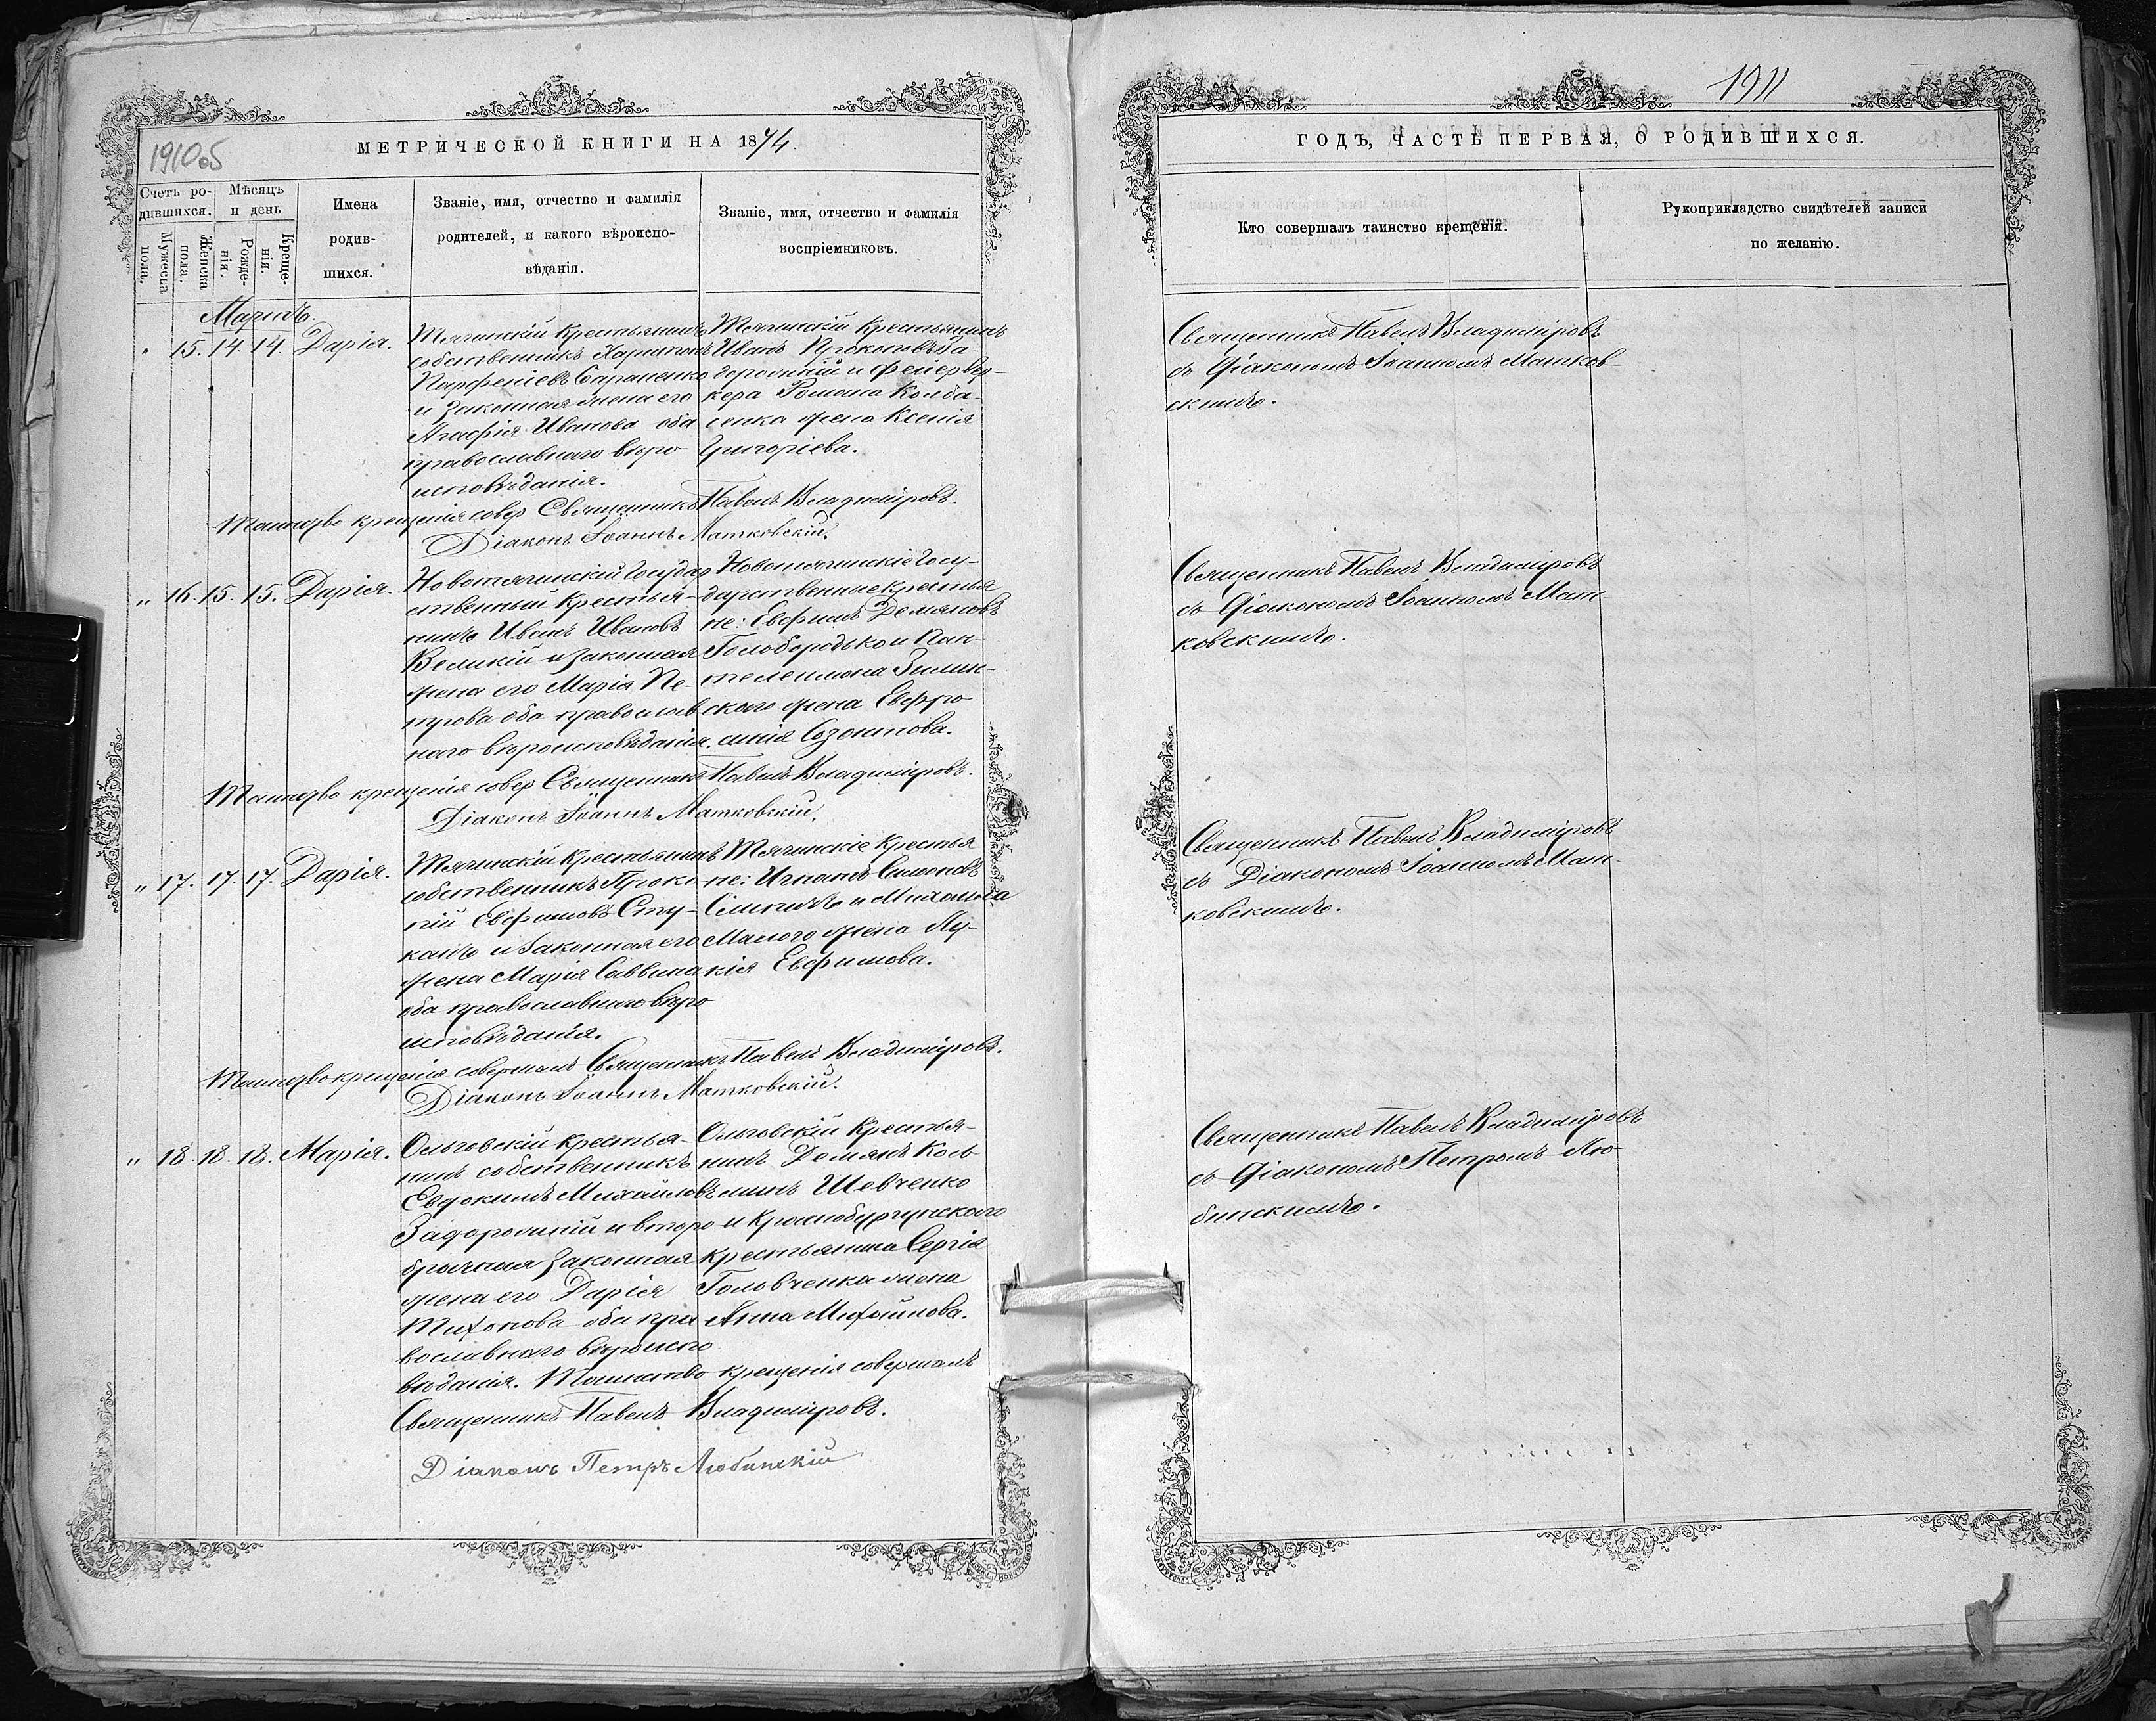 1910об
МЕТРИЧЕСКОЙ КНИГИ НА 1874.
Счетъ ро-
дившихся.
Мужеска
пола.
Женска
пола.
Мѣсяцъ
и день
Рожде-
нія.
Креще-
нія.
Имена
родив-
шихся.
Званіе, имя, отчество и фамилія
родителей, и какого вѣроиспо-
вѣданія.
Званіе, имя, отчество и фамилія
воспріемниковъ.
Мартъ.
" 15. 14. 14. Дарія.
Тягинскій крестьянинъ
собственникъ Харитонъ
Парфеніевъ Сараненко
и законная жена его
Агафія Иванова оба
православнаго вѣро-
исповѣданія.
Тягинскій крестьянинъ
Иванъ Прокоповъ За-
дорожній и фейервер-
кера Романа Колба-
сенка жена Ксенія
Григоріева.
Таинство крещенія совер Священникъ Павелъ Владиміровъ
Діаконъ Іоаннъ Матковскій.
" 16. 15. 15. Дарія.
Новотягинскій Государ
ственный крестья-
нинъ Иванъ Ивановъ
Великій и законная
жена его Марія Пе-
трова оба православ
наго вѣроисповѣданія.
Новотягинскіе Госу-
дарственные крестья
не: Евфимъ Демяновъ
Голобородько и Пан-
телеимона Зилин-
скаго жена Евфро
синія Созонтова.
Таинство крещенія совер Священникъ Павелъ Владиміровъ.
Діаконъ Іоаннъ Матковскій.
" 17. 17. 17. Дарія.
Тягинскій крестьянинъ
собственникъ Проко-
пій Евфимовъ Сту-
канъ и законная его
жена Марія Саввина
оба православнаго вѣро
исповѣданія.
Тягинскіе крестья
не: Игнатъ Симоновъ
и Михаила
Малого жена Лу-
кія Евфимова.
Таинство крещенія совершалъ Священникъ Павелъ Владиміровъ.
Діаконъ Іоаннъ Матковскій.
" 18. 18. 18. Марія.
Ольговскій крестья-
нинъ собственникъ
Евдокимъ Михайловъ
Задорожній и второ
брачная законная
жена его Дарія
Тихонова оба пра
вославнаго вѣроиспо
вѣданія.
Ольговскій крестья-
нинъ Демянъ Козь
минъ Шевченко
и
крестьянина Сергія
Головченка жена
Анна Михайлова.
Таинство крещенія совершалъ
Священникъ Павелъ Владиміровъ.
Діаконъ Петръ Любинскій
1911
ГОДЪ, ЧАСТЬ ПЕРВАЯ, О РОДИВШИХСЯ.
Кто совершалъ таинство крещенія.
Рукоприкладство свидѣтелей записи
по желанію.
Священникъ Павелъ Владиміровъ
съ Діакономъ Іоанномъ Матков
скимъ.
Священникъ Павелъ Владиміровъ
съ Діакономъ Іоанномъ Мат
ковскимъ.
Священникъ Павелъ Владиміровъ
съ Діакономъ Іоанномъ Мат-
ковскимъ.
Священникъ Павелъ Владиміровъ
съ Діакономъ Петромъ Лю-
бинскимъ.